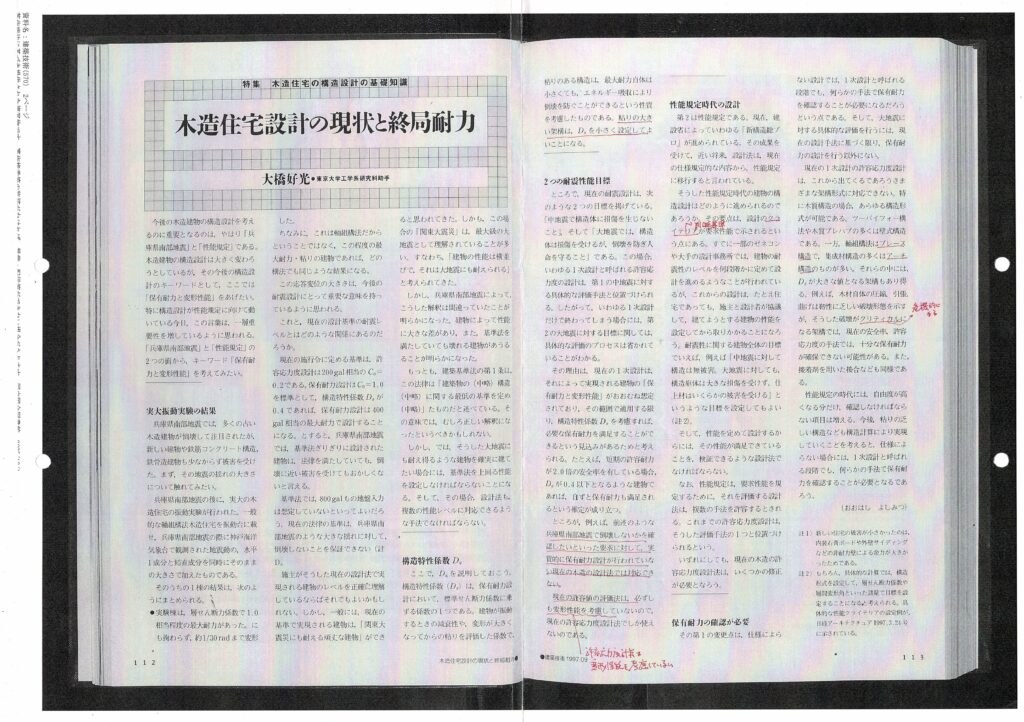 特集 木造住宅の構造設計の基礎知識
木造住宅設計の現状と終局耐力
大橋好光●東京大学工学系研究科助手
今後の木造建物の構造設計を考え
るのに重要となるのは、やはり「兵
庫県南部地震」と「性能規定」である。
木造建物の構造設計は大きく変わろ
うとしているが、その今後の構造設
計のキーワードとして、ここでは
「保有耐力と変形性能」をあげたい。
特に構造設計が性能規定に向けて動
いている今日、この言葉は、一層重
要性を増しているように思われる。
「兵庫県南部地震」と「性能規定」の
2つの面から、キーワード「保有耐
力と変形性能」を考えてみたい。
実大振動実験の結果
兵庫県南部地震では、多くの古い
木造建物が倒壊して注目されたが、
新しい建物や鉄筋コンクリート構造、
鉄骨造建物も少なからず被害を受け
た。まず、その地震の揺れの大きさ
について触れてみたい。
兵庫県南部地震の後に、実大の木
造住宅の振動実験が行われた。一般
的な軸組構法木造住宅を振動台に載
せ、兵庫県南部地震の際に神戸海洋
気象台で観測された地震動の、水平
1成分と鉛直成分を同時にそのまま
の大きさで加えたものである。
そのうちの1棟の結果は、次のよ
うにまとめられる。
●実験棟は、層せん断力係数で1.0
相当程度の最大耐力があった。に
も拘わらず、約1/30radまで変形
した。
ちなみに、これは軸組構法だから
ということではなく、この程度の最
大耐力・粘りの建物であれば、どの
構法でも同じような結果になる。
この応答変位の大きさは、今後の
耐震設計にとって重要な意味を持っ
ているように思われる。
これと、現在の設計基準の耐震レ
ベルとはどのような関係にあるのだ
ろうか。
現在の施行令に定める基準は、許
容応力度設計は200gal相当のC₀=
0.2である。保有耐力設計はC₀=1.0
を標準として、構造特性係数Dₛが
0.4であれば、保有耐力設計は400
gal相当の最大耐力で設計すること
になる。とすると、兵庫県南部地震
では、基準法ぎりぎりに設計された
建物は、法律を満たしていても、倒
壊に近い被害を受けてもおかしくな
いと言える。
基準法では、800galもの地盤入力
は想定していないといってよいだろ
う。現在の法律の基準は、兵庫県南
部地震のような大きな揺れに対して、
倒壊しないことを保証できない(註
1)。
施主がそうした現在の設計法で実
現される建物のレベルを正確に理解
しているならばそれでもよいかもし
れない。しかし、一般には、現在の
基準で実現される建物は、「関東大
震災にも耐える頑丈な建物」ができ
ると思われてきた。しかも、この場
合の「関東大震災」は、最大級の大
地震として理解されていることが多
い。すなわち、「建物の性能は横並
びで、それは大地震にも耐えられる」
と考えられてきた。
しかし、兵庫県南部地震によって、
こうした解釈は間違っていたことが
明らかになった。建物によって性能
に大きな差があり、また、基準法を
満たしていても壊れる建物があるう
ることが明らかになった。
もっとも、建築基準法の第1条は、
この法律は「建築物の(中略)構造
(中略)に関する最低の基準を定め
(中略)」たものだと述べている。そ
の意味では、むしろ正しい解釈にな
ったというべきかもしれない。
しかし、では、そうした大地震に
も耐え得るような建物を確実に建て
たい場合には、基準法を上回る性能
を設定しなければならないことにな
る。そして、その場合、設計法も、
複数の性能レベルに対応できるよう
な手法でなければならない。
構造特性係数Dₛ
ここで、Dₛを説明しておこう。
構造特性係数(Dₛ)は、保有耐力設
計において、標準せん断力係数に乗
ずる係数の1つである。建物が振動
するときの減衰性や、変形が大きく
なってからの粘りを評価した係数で、
112
木造住宅設計の現状と終局耐力●
粘りのある構造は、最大耐力自体は
小さくても、エネルギー吸収により
倒壊を防ぐことができるという性質
を考慮したものである。粘りの大き
い架構は、Dₛを小さく設定してよ
いことになる。
2つの耐震性能目標
ところで、現在の耐震設計は、次
のような2つの目標を掲げている。
「中地震で構造体に損傷を生じない
こと」、そして「大地震では、構造
体は損傷を受けるが、倒壊を防ぎ人
命を守ること」である。この場合、
いわゆる1次設計と呼ばれる許容応
力度の設計は、第1の中地震に対す
る具体的な評価手法と位置づけられ
る。したがって、いわゆる1次設計
だけで終わってしまう場合には、第
2の大地震に対する目標に関しては、
具体的な評価のプロセスは省かれて
いることがわかる。
その理由は、現在の1次設計は、
それによって実現される建物の「保
有耐力と変形性能」がおおむね想定
されており、その範囲で適用する限
り、構造特性係数Dₛを考慮すれば、
必要な保有耐力を満足することがで
きるという見込みがあるためと考え
られる。たとえば、短期の許容耐力
が2.0倍の安全率を有している場合、
Dₛが0.4以下となるような建物で
あれば、自ずと保有耐力も満足され
るという推定が成り立つ。
ところが、例えば、前述のような
兵庫県南部地震で倒壊しないかを確
認したいといった要求に対して、実
質的に保有耐力設計が行われていな
い現在の木造の設計法では対応でき
ない。
現在の許容値の評価法は、必ずし
も変形性能を考慮していないので、
現在の許容応力度設計法でしか使え
ないのである。
許容応力度計算は
変形性能を考慮していない
性能規定時代の設計
第2は性能規定である。現在、建
設省によっていわゆる「新構造総プ
ロ」が進められている。その成果を
受けて、近い将来、設計法は、現在
の仕様規定的な内容から、性能規定
に移行すると言われている。
そうした性能規定時代の建物の構
造設計はどのように進められるので
あろうか。その要点は、設計のクラ
イテリアが要求性能で示されるとい
う点にある。すでに一部のゼネコン
や大手の設計事務所では、建物の耐
震性のレベルを何段階かに定めて設
計を進めるようなことが行われてい
るが、これからの設計は、たとえ住
宅であっても、施主と設計者が協議
して、建てようとする建物の性能を
設定してから取りかかることになろ
う。耐震性に関する建物全体の目標
でいえば、例えば「中地震に対して
構造は無被害、大地震に対しても、
構造躯体は大きな損傷を受けず、仕
上材はいくらかの被害を受ける」と
いうような目標を設定してもよい
(註2)。
そして、性能を定めて設計するか
らには、その性能が満足できている
ことを、検証できるような設計法で
なければならない。
なお、性能規定は、要求性能を規
定するために、それを評価する設計
法は、複数の手法を許容するとされ
る。これまでの許容応力度設計は、
そうした評価手法の1つと位置づけ
られるという。
いずれにしても、現在の木造の許
容応力度設計法は、いくつかの修正
が必要となろう。
保有耐力の確認が必要
その第1の変更点は、仕様によら
ない設計では、1次設計と呼ばれる
段階でも、何らかの手法で保有耐力
を確認することが必要になるだろう
という点である。そして、大地震に
対する具体的な評価を行うには、現
在の設計手法に基づく限り、保有耐
力の設計を行う以外にない。
現在の1次設計の許容応力度設計
は、これから出てくるであろうさま
ざまな架構形式に対応できない。特
に木質構造の場合、あらゆる構造形
式が可能である。ツーバイフォー構
法や木質プレハブの多くは壁式構造
である。一方、軸組構法はブレース
構造で、集成材構造の多くはアーチ
構造のものが多い。それらの中には、
Dₛが大きな値となる架構もあり得
る。例えば、木材自体の圧縮、引張、
曲げは靭性に乏しい破壊形態を示す
が、そうした破壊がクリティカルに
なる架構では、現在の安全率、許容
応力度の手法では、十分な保有耐力
が確保できない可能性がある。また、
接着剤を用いた接合なども同様であ
る。
危機的に
なる
性能規定の時代には、自由度が高
くなる分だけ、確認しなければなら
ない項目は増える。今後、粘りの乏
しい構造なども構造計算により実現
していくことを考えると、仕様によ
らない場合には、1次設計と呼ばれ
る段階でも、何らかの手法で保有耐
力を確認することが必要となるであ
ろう。
(おおはし よしみつ)
註1)新しい住宅の被害が小さかったのは、
内装石膏ボードや外壁サイディング
などの非耐力壁による余力が大きか
ったためである。
註2)もちろん、具体的な計算では、構造
形式を設定して、層せん断力係数や
層間変形角といった諸量で目標を設
定することになると考えられる。具
体的な性能クライテリアの設定例が、
日経アーキテクチュア1997.3.24号
に示されている。
●建築技術 1997.09
113
資料名:建築技術(570) 2ページ